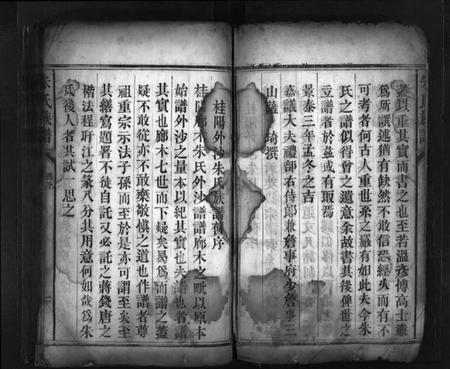 蓋以重其實而書之也至若溫彥博高士廉
為所譔述猶有歉然不敢信恐經久而有不
可考者何古人重世系之嚴有如此夫今朱
氏之譜似得會之遺意余故書其後俾世之
立譜者於茲或有取焉
景泰三年孟冬之吉
嘉議大夫禮部右侍郎兼詹事府少詹事三
山薩琦撰
桂陽外沙朱氏族譜舊序
桂陽廊木朱氏外沙譜譜廊木之畈以原本
始譜外沙之量本以紀其實也夫譜也者譜
其實也廊木七世而下疑矣曷為而譜之蓋
疑不敢從亦不敢棄敬慎之道也作譜者尊
祖重宗示法子孫而至於是亦可謂至矣至
其繕寫題署不徒自託又必託之蔣錢唐之
楷法程㓝江之篆八分其用意何如哉為朱
氏後人者其試一思之
朱氏族譜